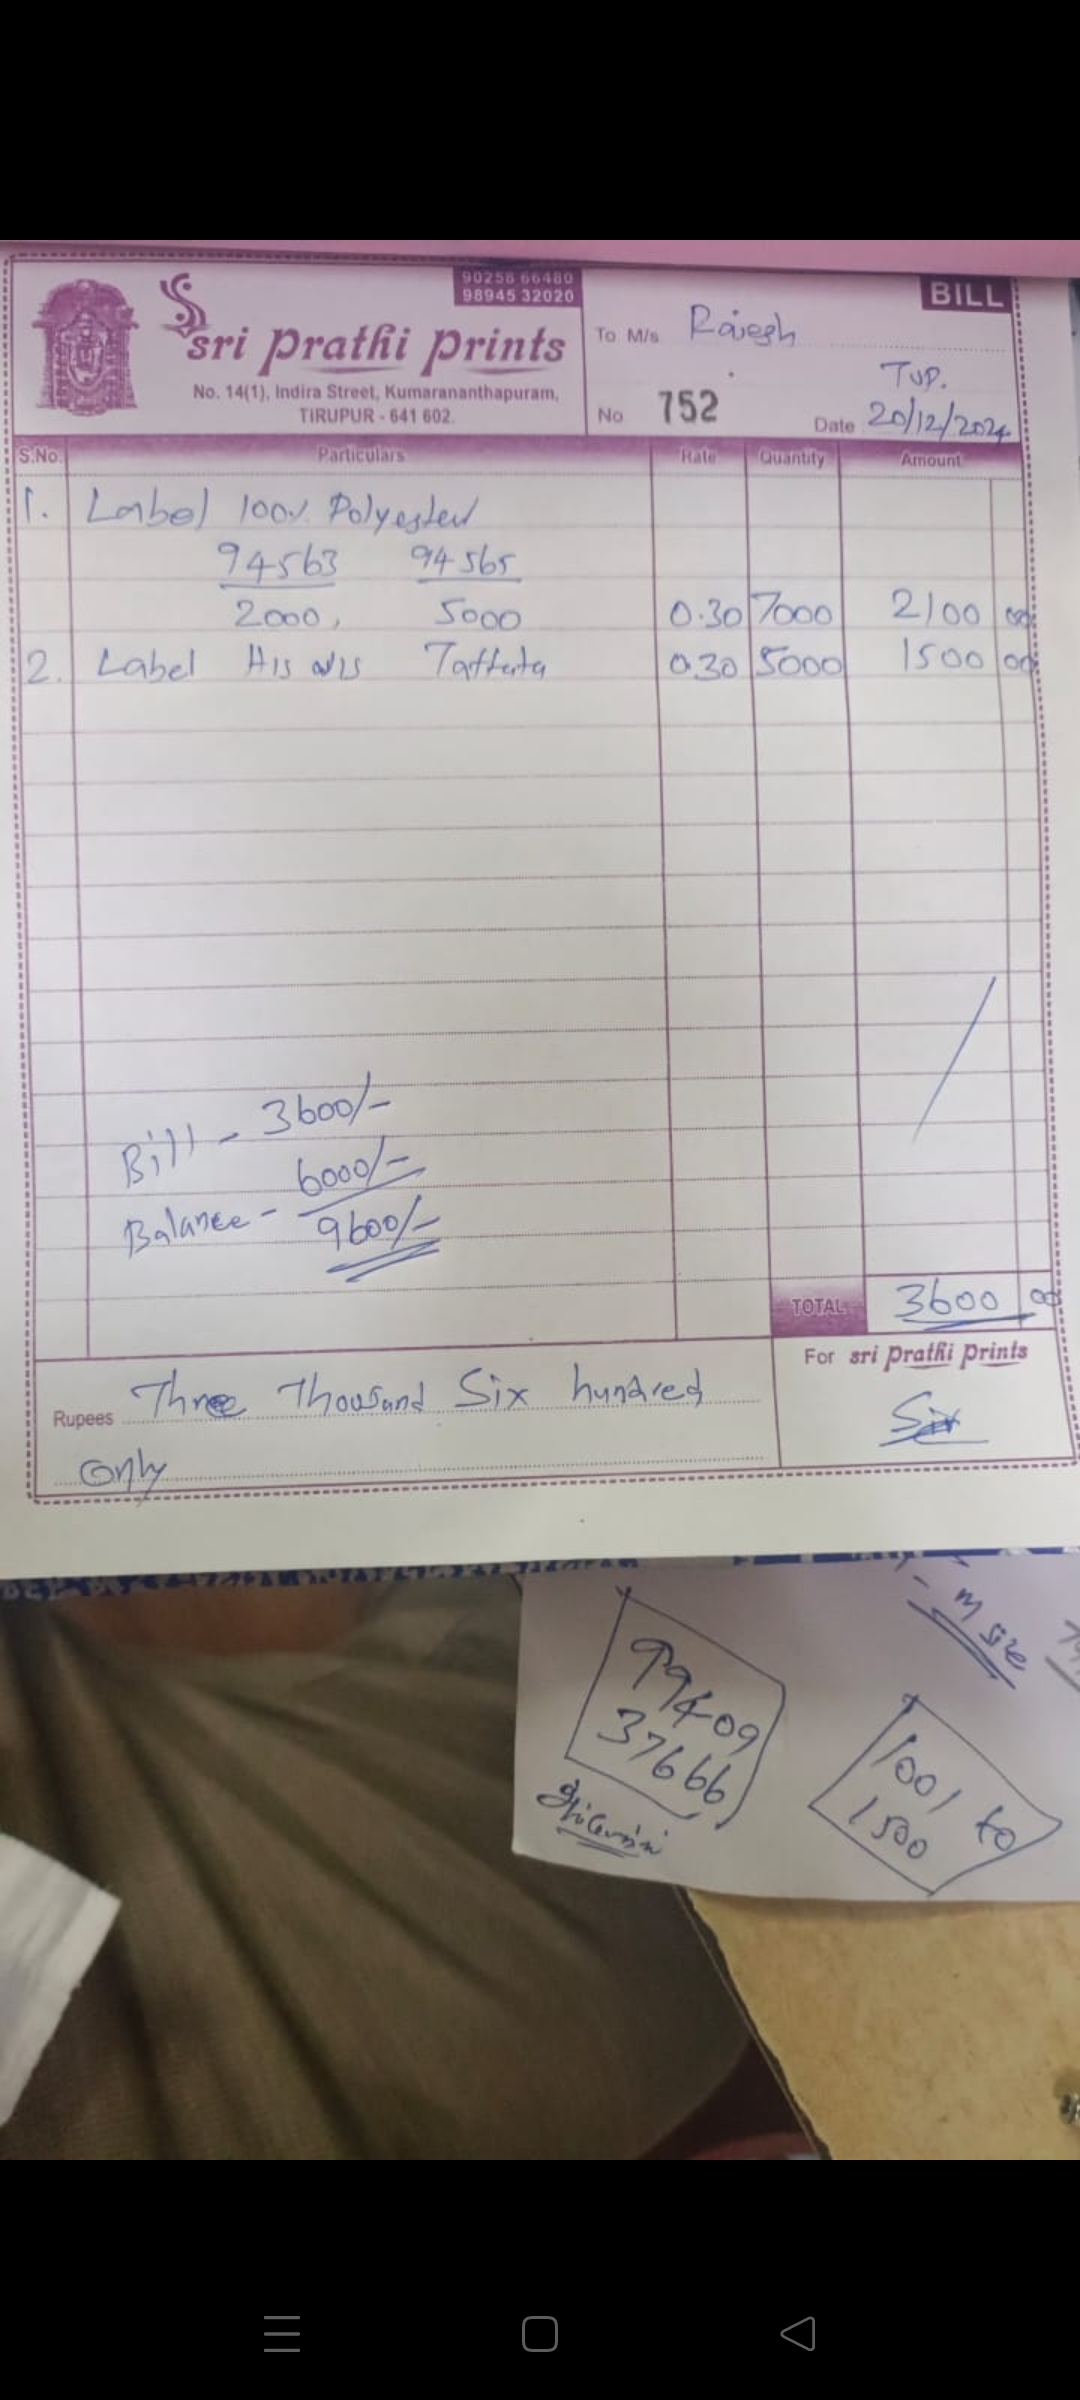 90258 66480
98945 32020
BILL
sri prathi prints
No. 14(1), Indira Street, Kumarananthapuram,
TIRUPUR - 641 602.
To M/s Rajesh
Tup.
No 752
Date 20/12/2024
S.No. Particulars Rate Quantity Amount
1. Label 100% Polyester
94563 94565
2000, 5000 0.30 7000 2100 00
2. Label His Taffeta 0.30 5000 1500 00
Bill - 3600/-
6000/-
Balance - 9600/-
TOTAL 3600 00
Rupees Three Thousand Six hundred
only
For sri prathi prints
- M size
99409
37666
1001 to
1500